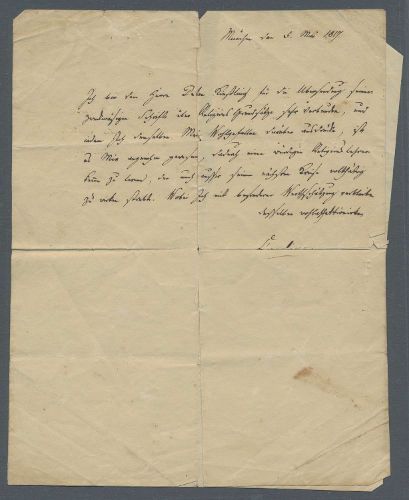 München den 5. Mai 1817
Ich bin dem Herrn für die Übersendung seiner
Schrift über Religions Grundsätze, sehr verbunden, und
indem Ich demselben Mein Wohlgefallen darüber ausdrücke, ist
es Mir angenehm gewesen, dadurch einen würdigen Religionslehrer
kennen zu lernen, der auch außer seinem nächsten Kreise wohlthätig
zu wirken strebt. Womit Ich mit besonderer Werthschätzung verbleibe
desselben wohlaffectionirter